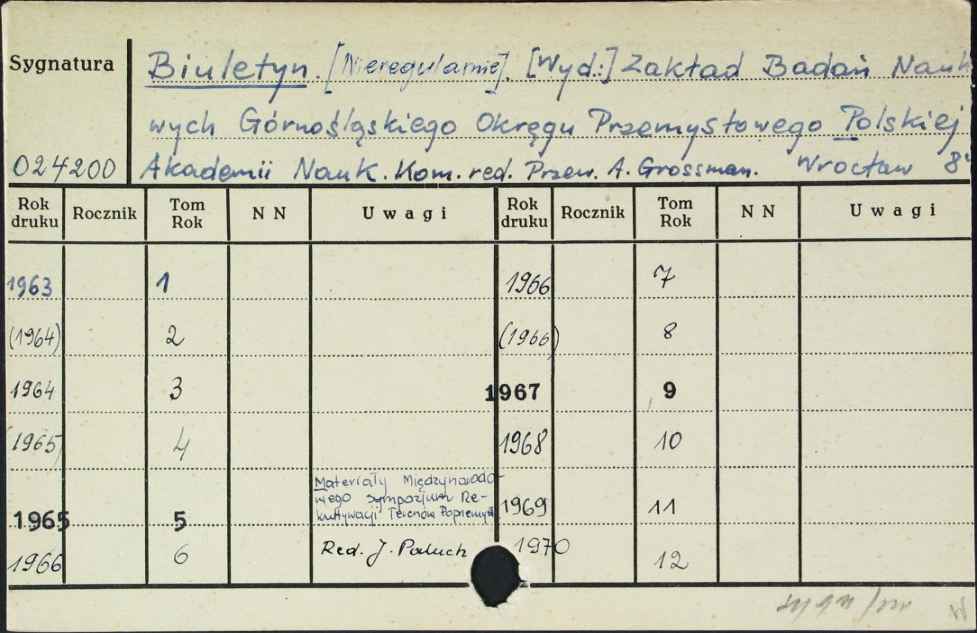 Sygnatura
Biuletyn. [Nieregularnie]. [Wyd:] Zakład Badań Nauko-
wych Górnośląskiego Okręgu Przemysłowego Polskiej
024200 Akademii Nauk. Kom. red. Przew. A. Grossman. Wrocław 8°
Rok druku Rocznik Tom Rok N N Uwagi Rok druku Rocznik Tom Rok N N Uwagi
1963 1 1966 7
(1964) 2 (1966) 8
1964 3 1967 9
(1965) 4 1968 10
1965 5 Materiały Międzynarodo-
wego Sympozjum Re-
kultywacji Terenów Poprzemysł. 1969 11
1966 6 Red. J. Paluch 1970 12